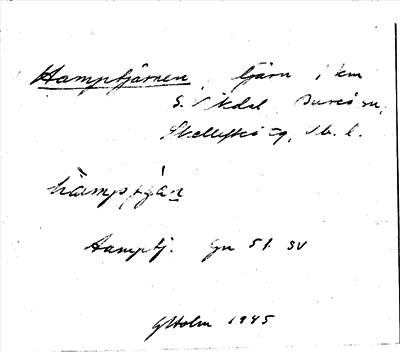 Hamptjärnen, tjärn 1 km
S. Vikdal, Bureå sn,
Skellefteå tg, Vb. l.
hámptjän
Hamptj. Gn 51 SV
GHolm 1945